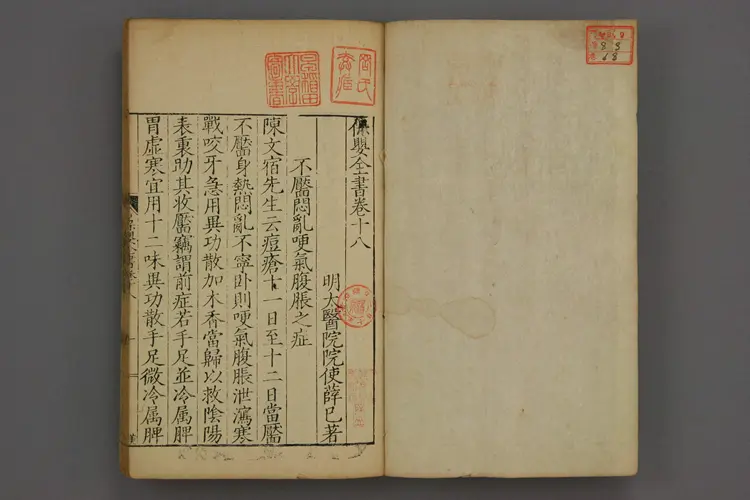 保嬰全書卷十八
明太醫院院使薛己著
不靨悶亂哽氣腹脹之症
陳文宿先生云痘瘡十一日至十二日當靨
不靨身熱悶亂不寧卧則哽氣腹脹泄瀉寒
戰咬牙急用異功散加木香當歸以救陰陽
表裏助其收靨竊謂前症若手足並冷属脾
胃虛寒宜用十二味異功散手足微冷属脾
早稲田大學圖書